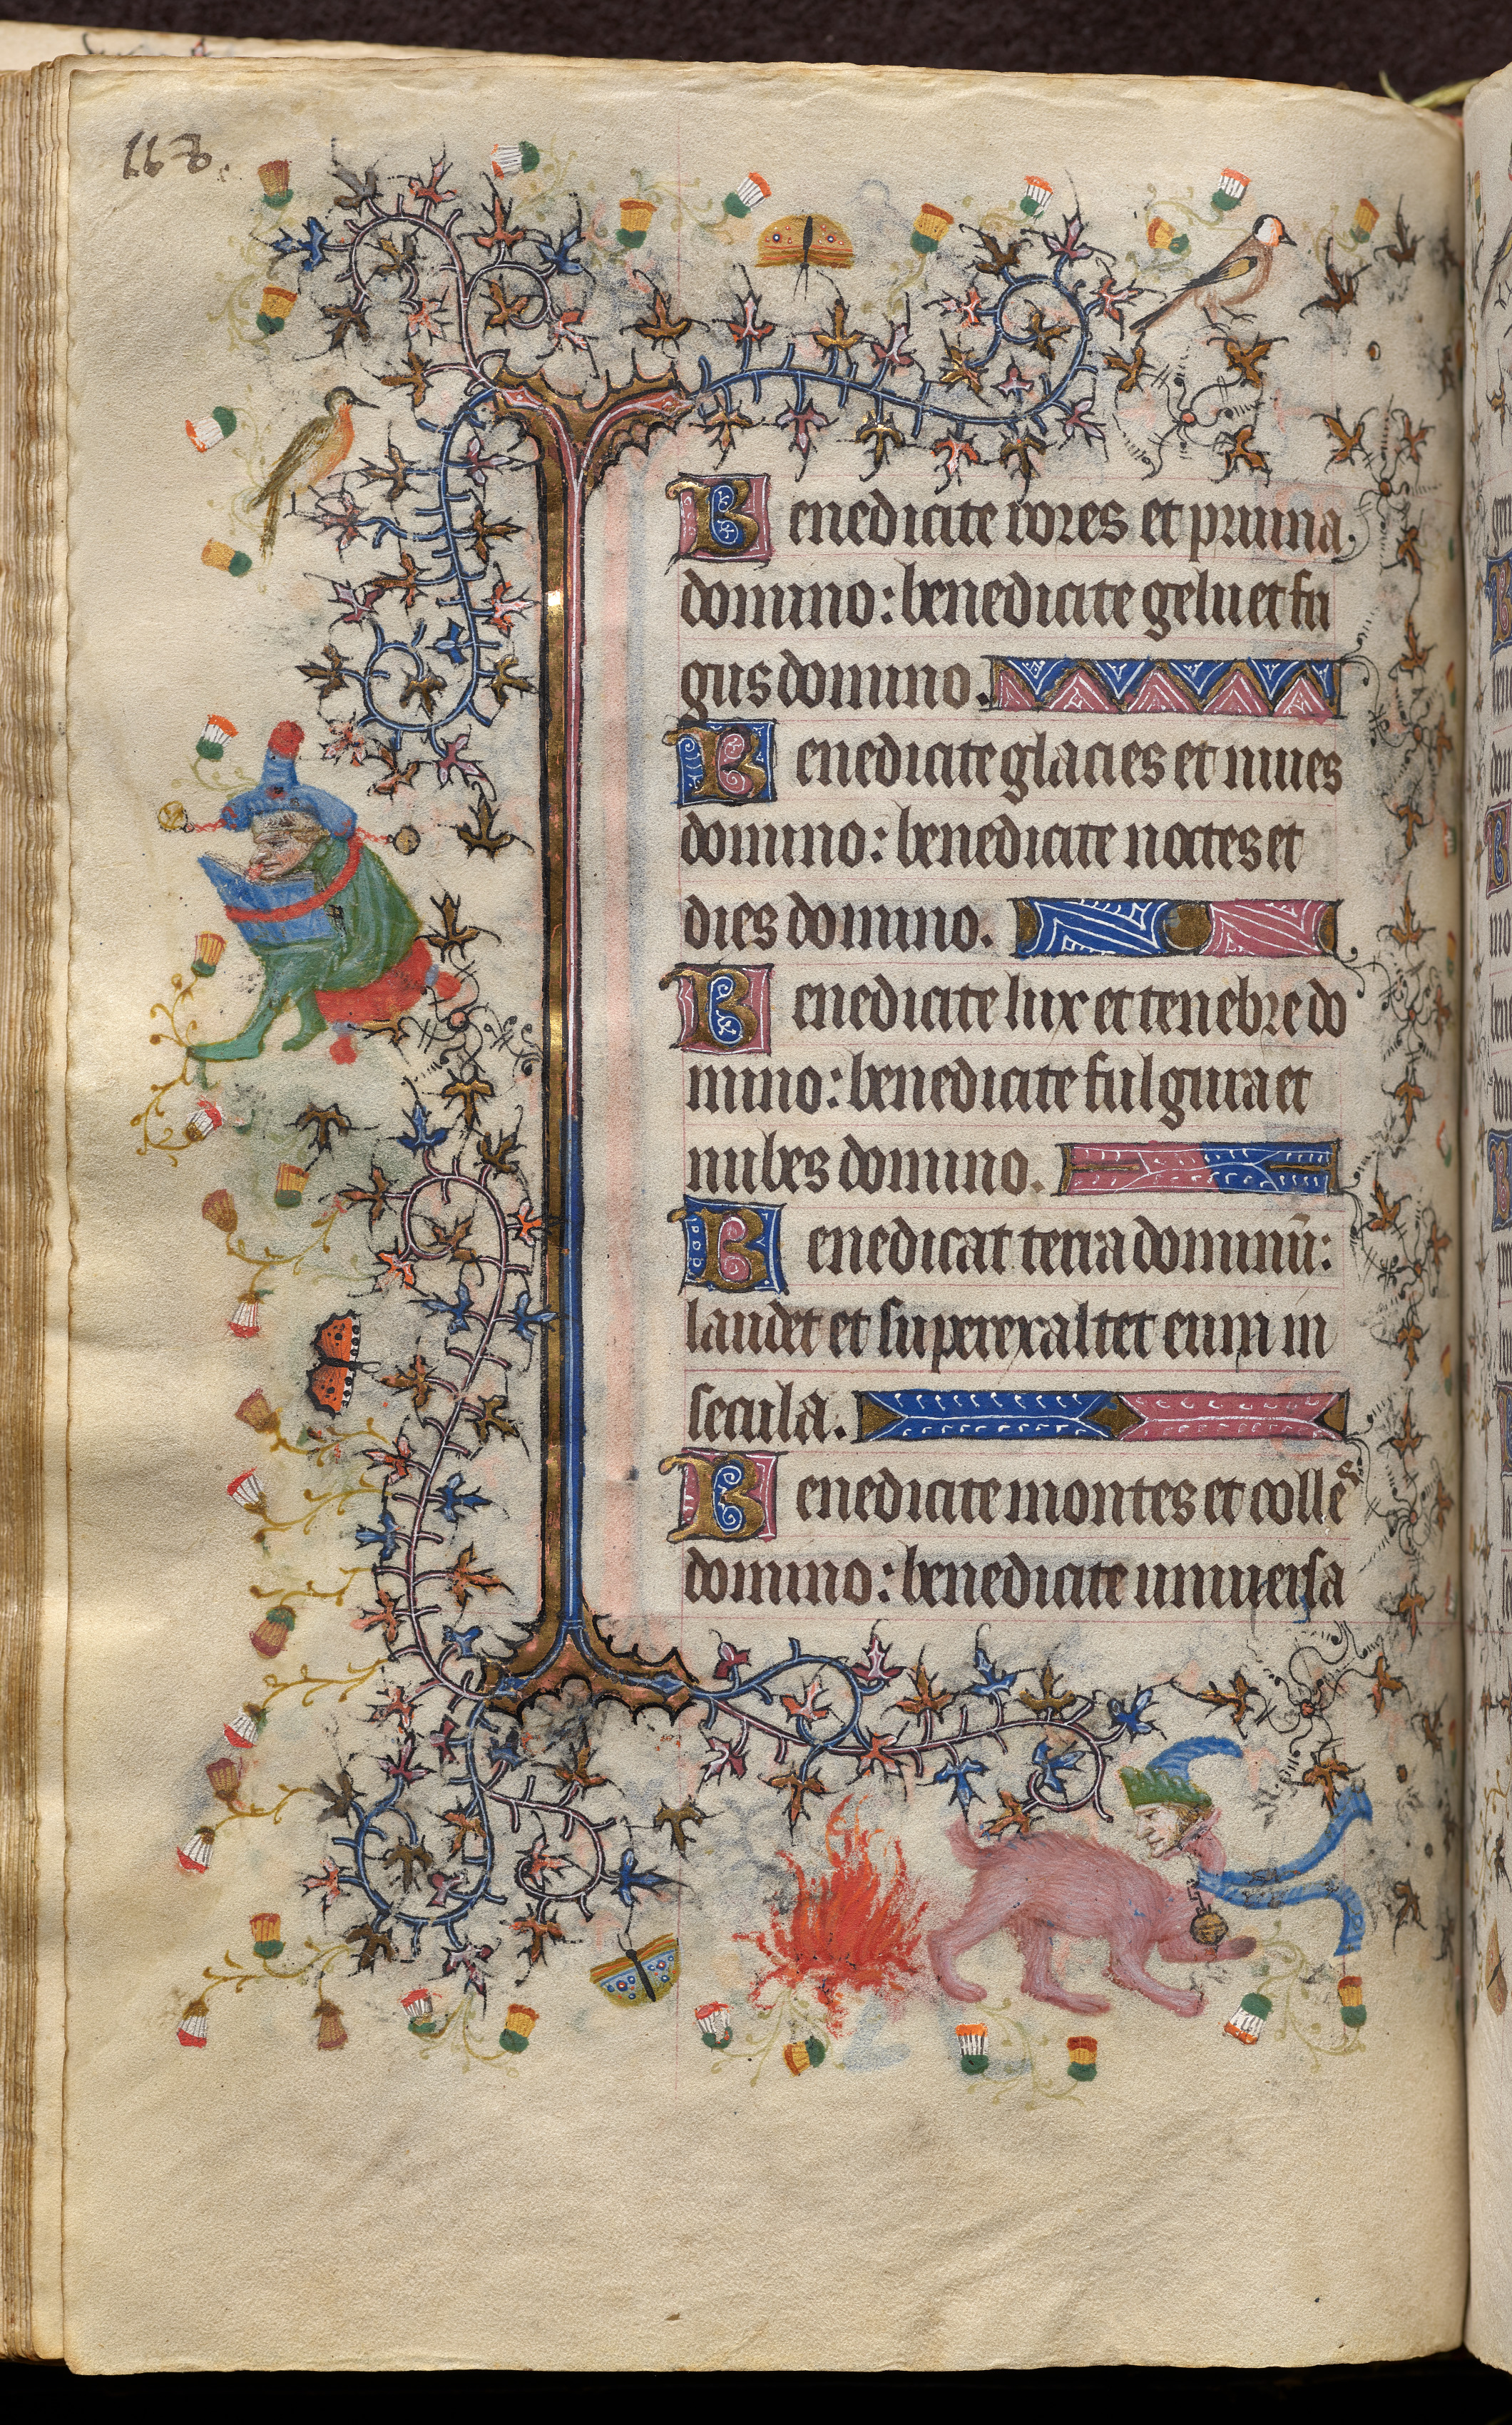 168.
Benedicite rores et pruina
domino: benedicite gelu et fri
gus domino.
Benedicite glacies et niues
domino: benedicite noctes et
dies domino.
Benedicite lux et tenebre do
mino: benedicite fulgura et
nubes domino.
Benedicat terra dominū:
laudet et superexaltet eum in
secula.
Benedicite montes et colles
domino: benedicite uniuersa